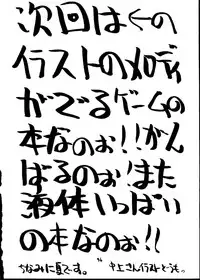 次回は←の
イラストのメロディ
がでるゲームの
本なのぉ!!がん
ばるのぉ!また
液体いっぱい
の本なのぉ!!
ちなみに夏です。
中上さんイラストどうも。